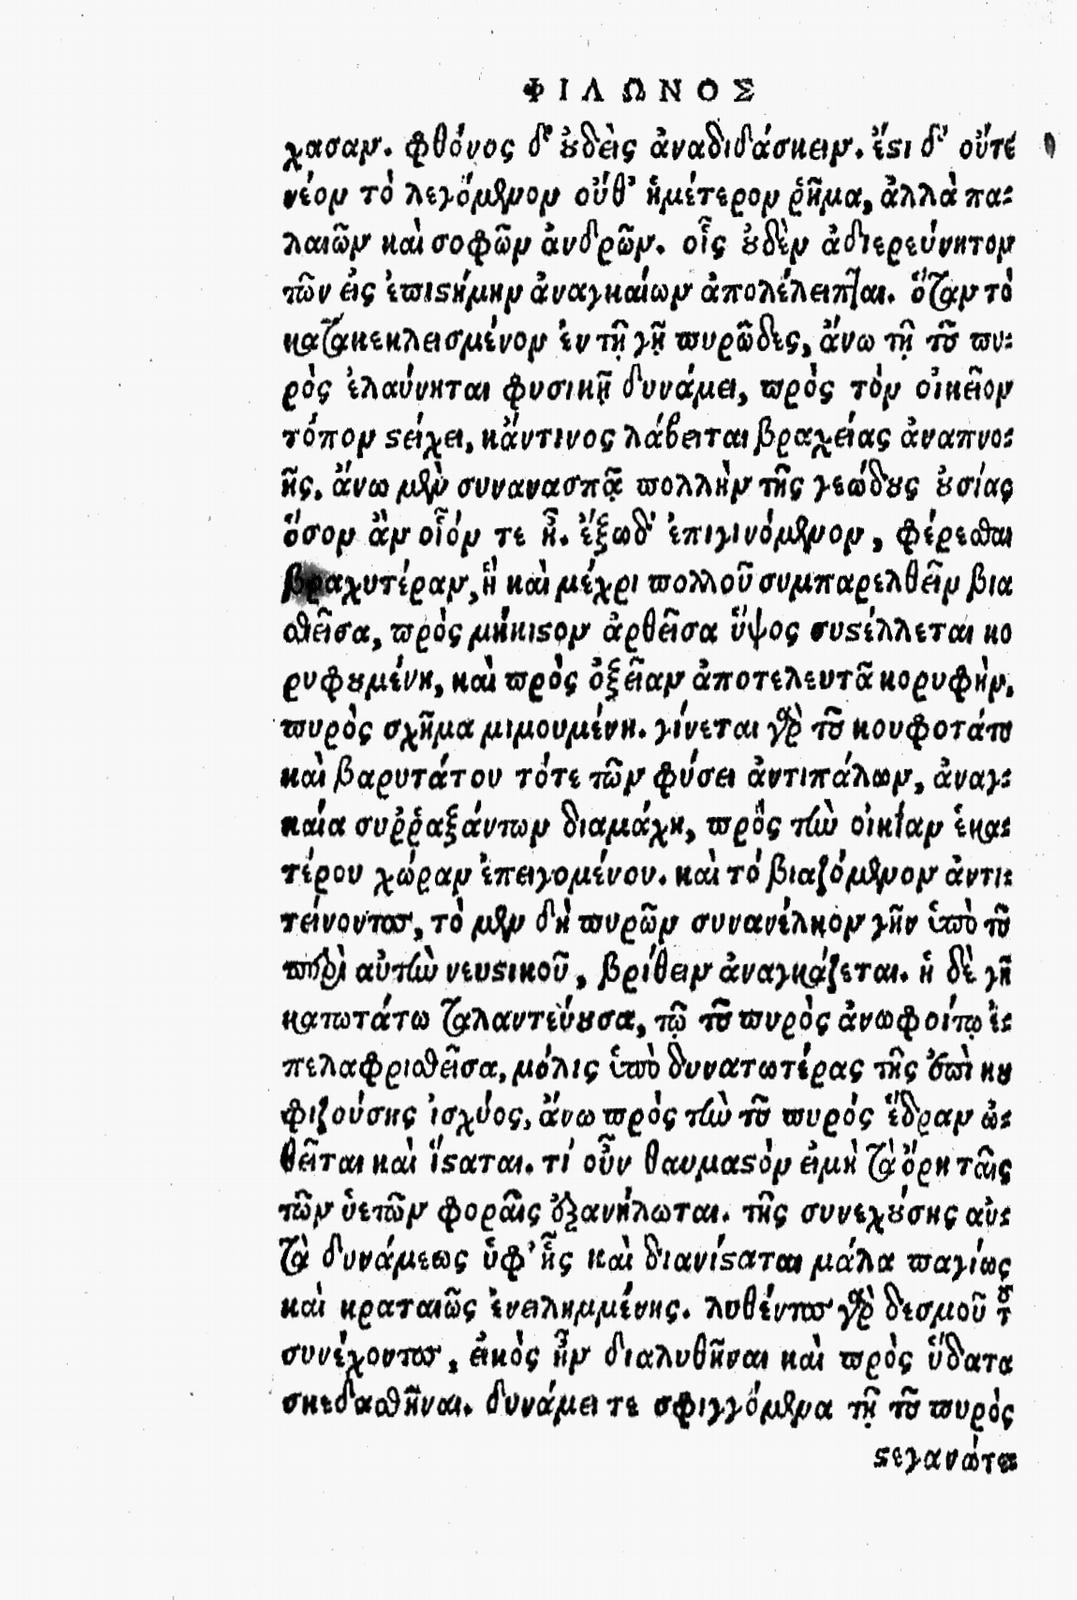 ΦΙΛΩΝΟΣ
χασαν. φθόνος δ' οὐδεὶς ἀναδιδάσκειν. ἔστι δ' οὔτε
νέον τὸ λεγόμενον οὔθ' ἡμέτερον ῥῆμα, ἀλλὰ πα-
λαιῶν καὶ σοφῶν ἀνδρῶν. οἷς οὐδὲν ἀδιερεύνητον
τῶν εἰς ἐπιστήμην ἀναγκαίων ἀπολέλειπται. ὅταν τὸ
κατακεκλεισμένον ἐν τῇ γῇ πυρῶδες, ἄνω τῇ τοῦ πυ-
ρὸς ἐλαύνηται φυσικῇ δυνάμει, πρὸς τὸν οἰκεῖον
τόπον στείχει, κἄντινος λάβειται βραχείας ἀναπνο-
ῆς, ἄνω μὲν συνανασπᾷ πολλὴν τῆς γεώδους οὐσίας
ὅσον ἂν οἷόν τε ᾖ. ἔξωδ' ἐπιγινόμενον, φέρεσθαι
βραχυτέραν, ἢ καὶ μέχρι πολλοῦ συμπαρελθεῖν βια
σθεῖσα, πρὸς μήκιστον ἀρθεῖσα ὕψος συστέλλεται κο
ρυφουμένη, καὶ πρὸς ὀξεῖαν ἀποτελευτᾶ κορυφὴν,
πυρὸς σχῆμα μιμουμένη. γίνεται γὰρ τοῦ κουφοτάτου
καὶ βαρυτάτου τότε τῶν φύσει ἀντιπάλων, ἀναγ-
καία συῤῥαξάντων διαμάχη, πρὸς τὴν οἰκίαν ἑκα-
τέρου χώραν ἐπειγομένου. καὶ τὸ βιαζόμενον ἀντι-
τείνοντος, τὸ μὲν δὴ πυρῶν συνανέλκον γῆν ὑπὸ τοῦ
περὶ αὐτὴν νευστικοῦ, βρίθειν ἀναγκάζεται. ἡ δὲ γῆ
κατωτάτω ταλαντεύουσα, τῷ τοῦ πυρὸς ἀνωφοίτῳ ἐ-
πελαφρισθεῖσα, μόλις ὑπὸ δυνατωτέρας τῆς ἐπὶ κου
φιζούσης ἰσχύος, ἄνω πρὸς τὴν τοῦ πυρὸς ἕδραν ὠ-
θεῖται καὶ ἵσταται. τί οὖν θαυμαστὸν εἰμὴ τὰ ὄρη ταῖς
τῶν ὑετῶν φοραῖς ἐξανήλωται. τῆς συνεχούσης αὐ-
τὰ δυνάμεως ὑφ' ἧς καὶ διανίσταται μάλα παγίως
καὶ κραταιῶς ἐνειλημμένης. λυθέντος γὰρ δεσμοῦ τοῦ
συνέχοντος, εἰκὸς ἦν διαλυθῆναι καὶ πρὸς ὕδατα
σκεδασθῆναι. δυνάμει τε σφιγγόμενα τῇ τοῦ πυρὸς
στεγανώτε